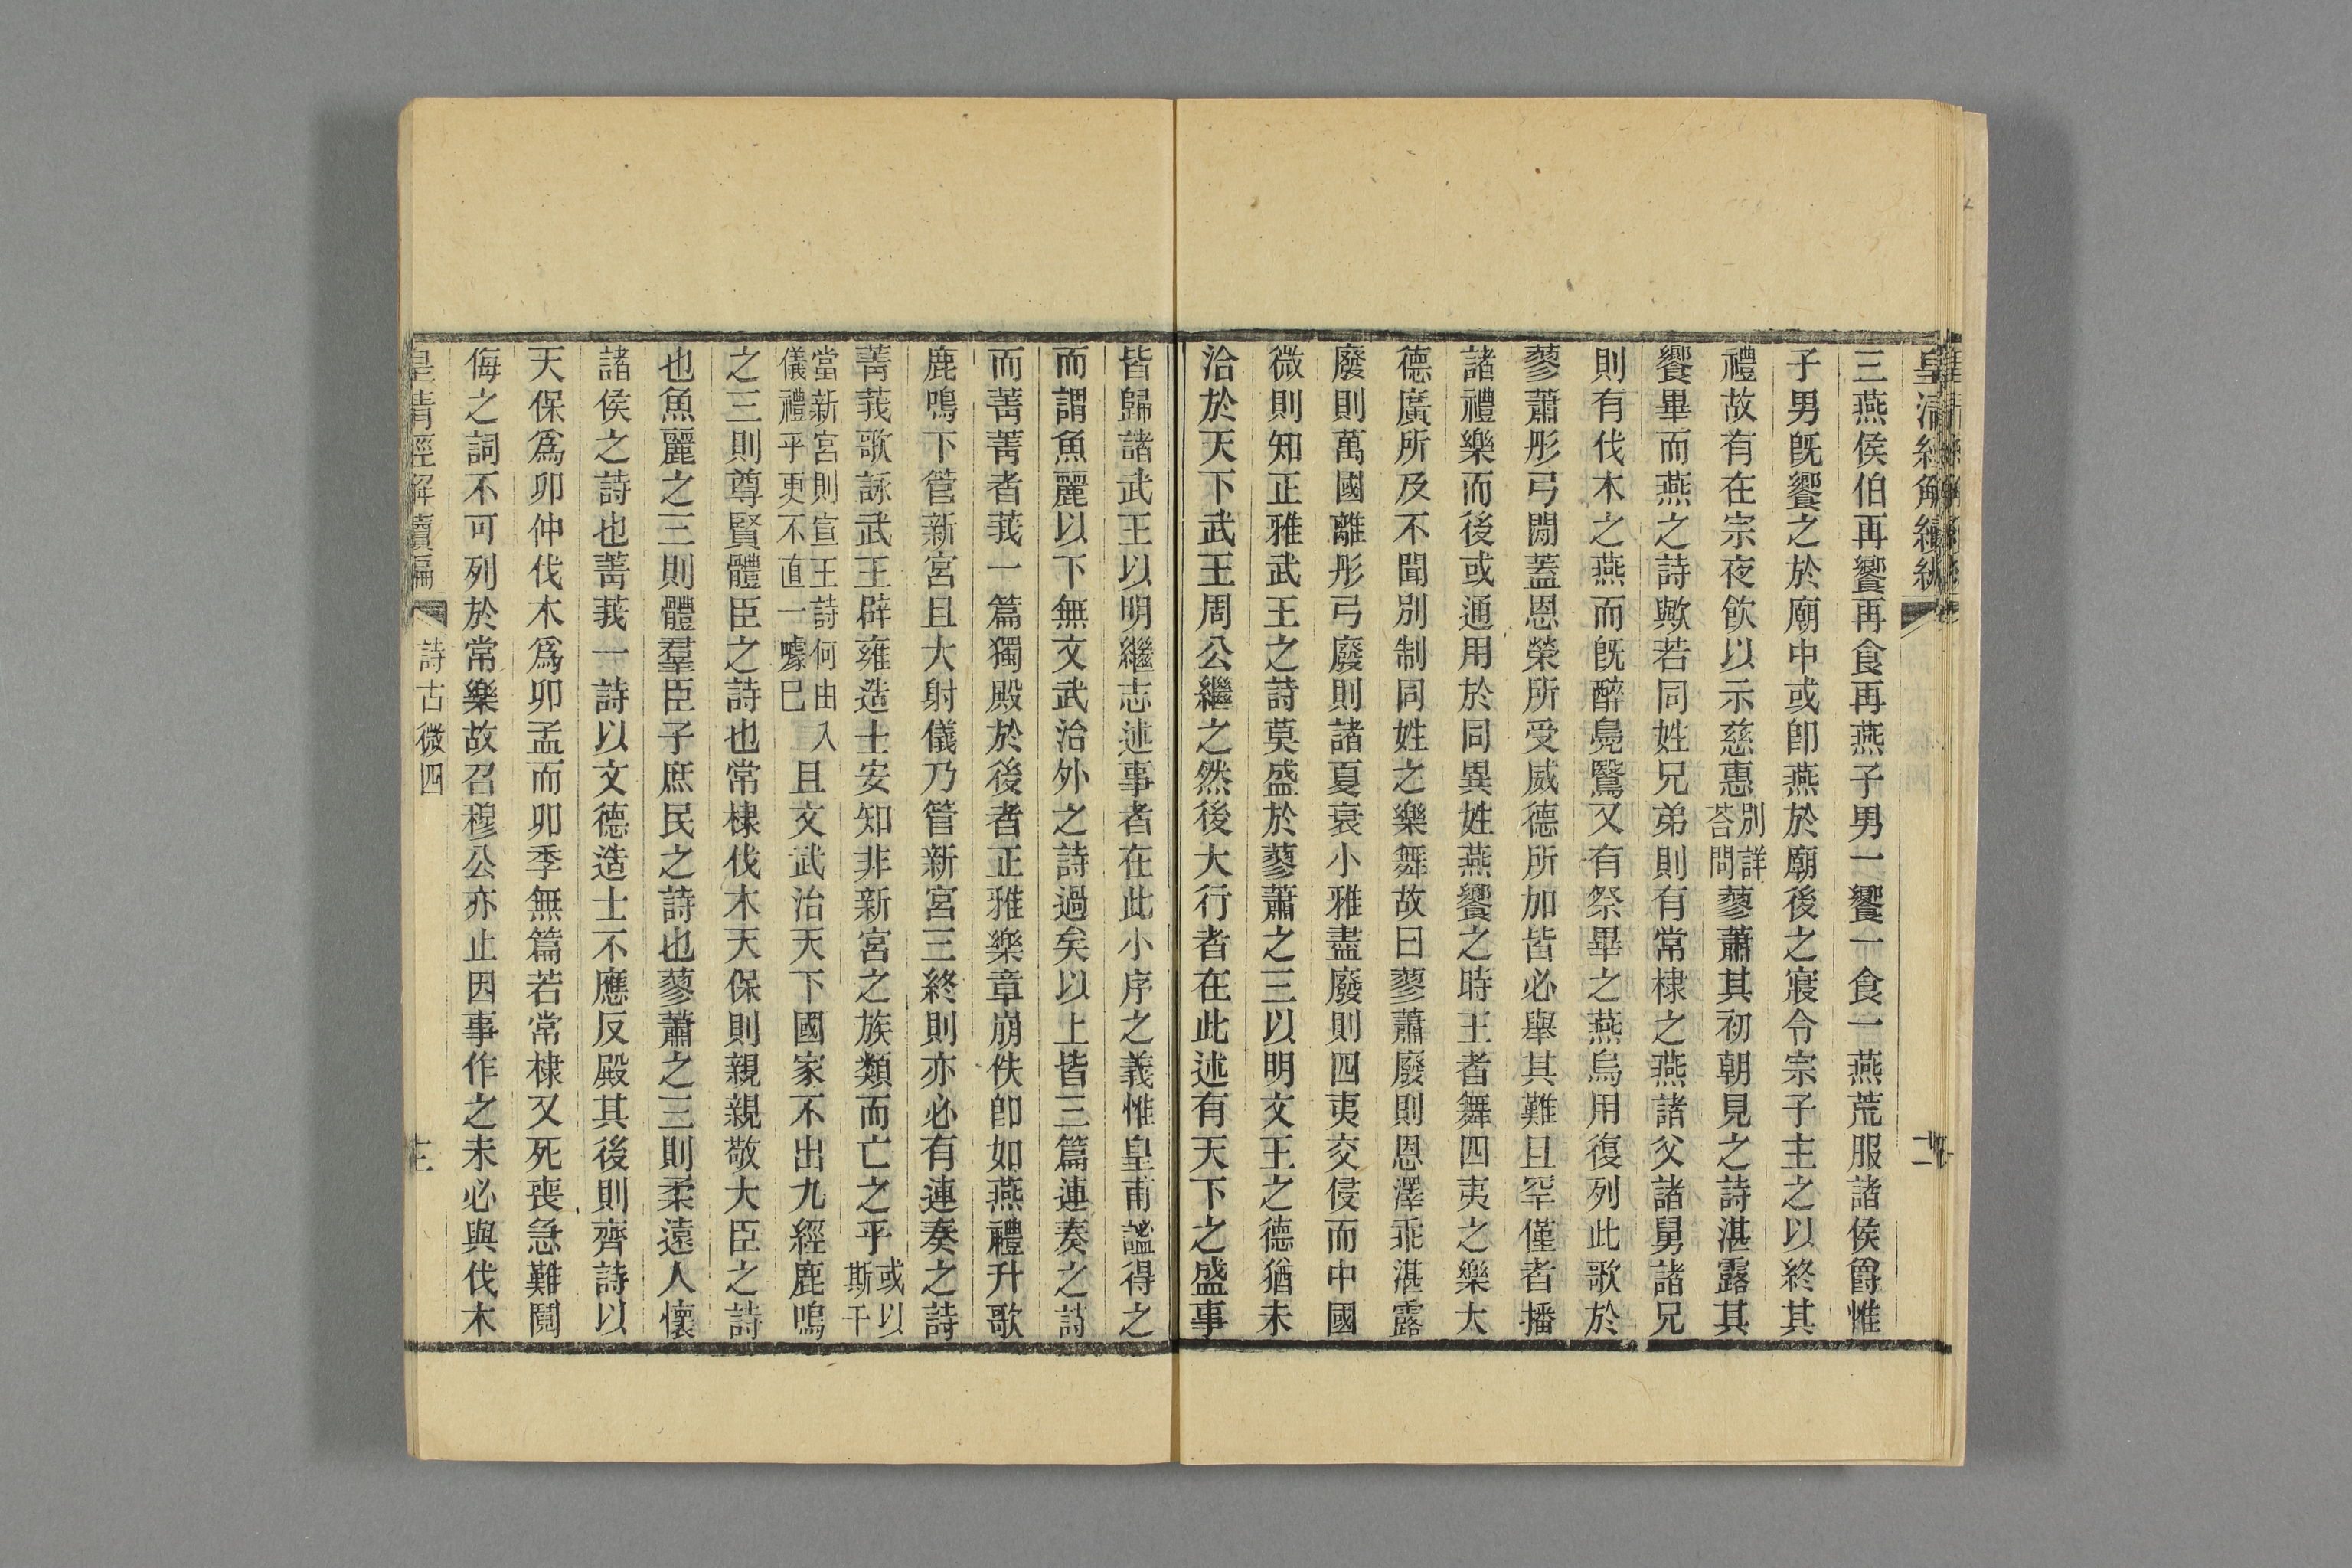 皇清經解續編
三燕侯伯再饗再食再燕子男一饗一食一燕荒服諸侯爵惟
子男旣饗之於廟中或卽燕於廟後之寢令宗子主之以終其
禮故有在宗夜飮以示慈惠別詳荅問蓼蕭其初朝見之詩湛露其
饗畢而燕之詩歟若同姓兄弟則有常棣之燕諸父諸舅諸兄
則有伐木之燕而旣醉鳧鷖又有祭畢之燕烏用復列此歌於
蓼蕭彤弓閒蓋恩榮所受威德所加皆必舉其難且罕僅者播
諸禮樂而後或通用於同異姓燕饗之時王者舞四夷之樂大
德廣所及不聞別制同姓之樂舞故曰蓼蕭廢則恩澤乖湛露
廢則萬國離彤弓廢則諸夏衰小雅盡廢則四夷交侵而中國
微則知正雅武王之詩莫盛於蓼蕭之三以明文王之德猶未
洽於天下武王周公繼之然後大行者在此述有天下之盛事
皆歸諸武王以明繼志述事者在此小序之義惟皇甫謐得之
而謂魚麗以下無文武治外之詩過矣以上皆三篇連奏之詩
而菁菁者莪一篇獨殿於後者正雅樂章崩佚卽如燕禮升歌
鹿鳴下管新宮且大射儀乃管新宮三終則亦必有連奏之詩
菁莪歌詠武王辟雍造士安知非新宮之族類而亡之乎或以斯干
當新宮則宣王詩何由入儀禮乎更不直一噱巳且文武治天下國家不出九經鹿鳴
之三則尊賢體臣之詩也常棣伐木天保則親親敬大臣之詩
也魚麗之三則體羣臣子庶民之詩也蓼蕭之三則柔遠人懷
諸侯之詩也菁莪一詩以文德造士不應反殿其後則齊詩以
天保爲卯仲伐木爲卯孟而卯季無篇若常棣又死喪急難鬩
侮之詞不可列於常樂故召穆公亦止因事作之未必與伐木
皇清經解續編 詩古微四